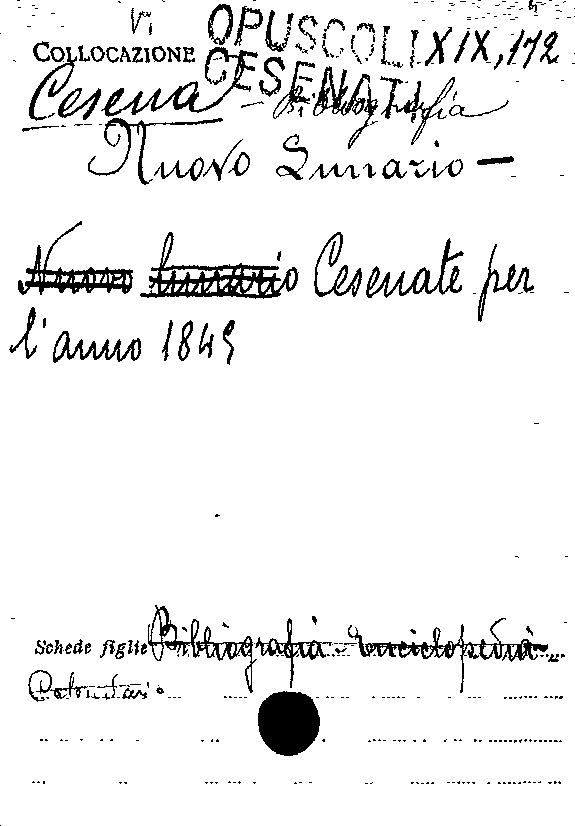 Vi
COLLOCAZIONE OPUSCOLI XIX, 172
CESENATI
Cesena - Bibliografia
Nuovo Lunario —
Nuovo Lunario Cesenate per
l'anno 1849
Schede figlie Bibliografia - Enciclopedia -
Calendario